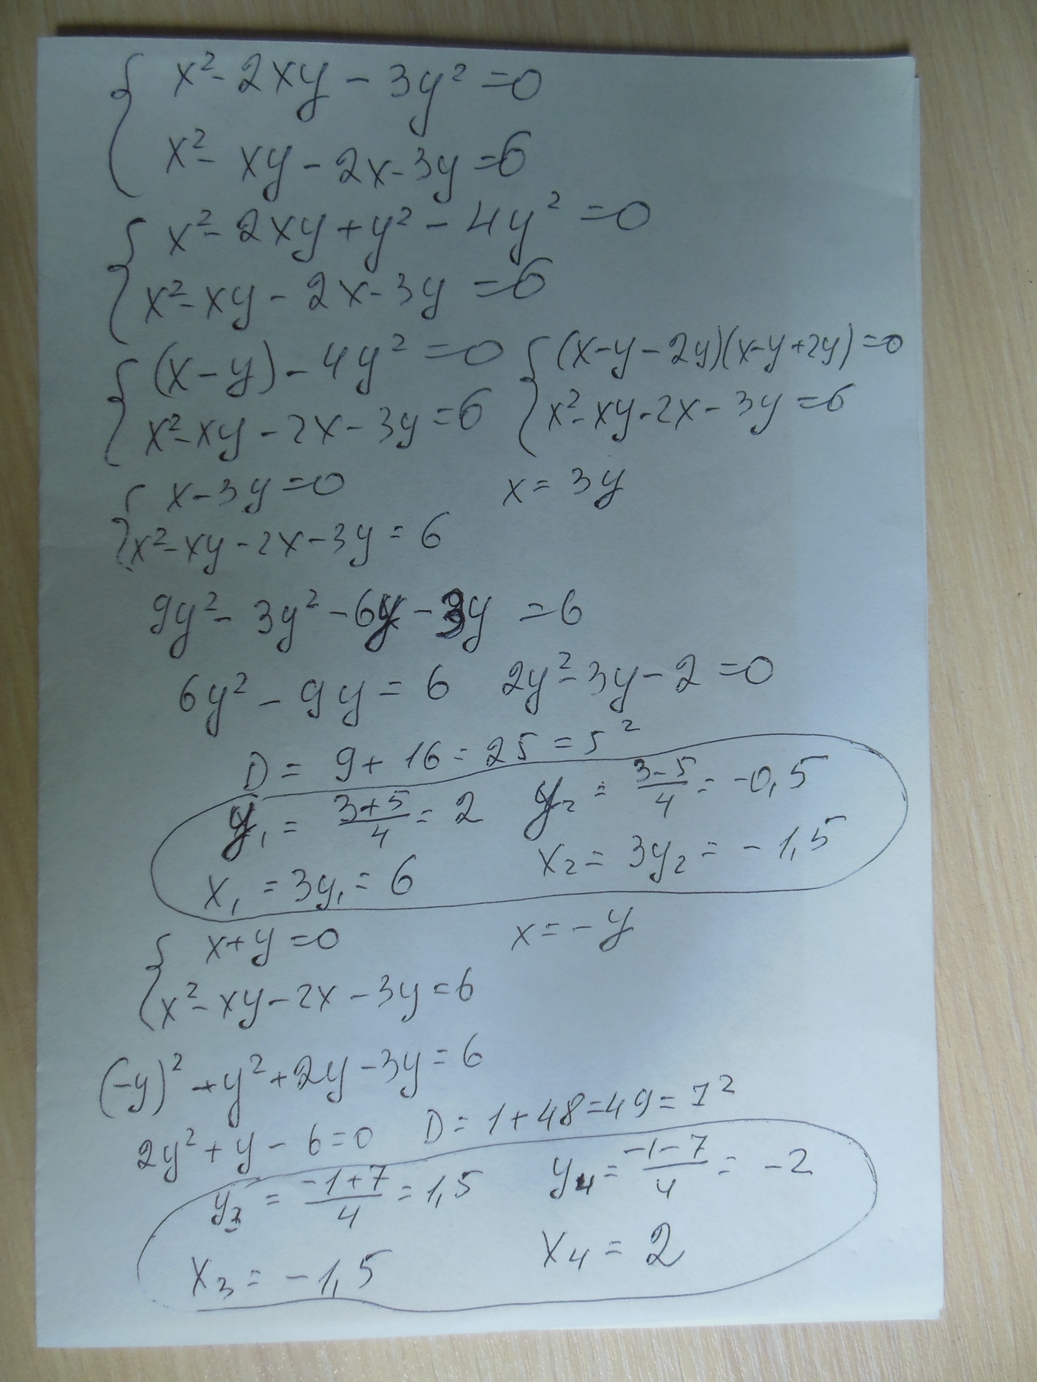 x² - 2xy - 3y² = 0
x² - xy - 2x - 3y = 6
x² - 2xy + y² - 4y² = 0
x² - xy - 2x - 3y = 6
(x - y) - 4y² = 0 (x - y - 2y)(x - y + 2y) = 0
x² - xy - 2x - 3y = 6 x² - xy - 2x - 3y = 6
x - 3y = 0 x = 3y
x² - xy - 2x - 3y = 6
9y² - 3y² - 6y - 3y = 6
6y² - 9y = 6 2y² - 3y - 2 = 0
D = 9 + 16 = 25 = 5²
y₁ = (3+5)/4 = 2 y₂ = (3-5)/4 = -0,5
x₁ = 3y₁ = 6 x₂ = 3y₂ = -1,5
x + y = 0 x = -y
x² - xy - 2x - 3y = 6
(-y)² + y² + 2y - 3y = 6
2y² + y - 6 = 0 D = 1 + 48 = 49 = 7²
y₃ = (-1+7)/4 = 1,5 y₄ = (-1-7)/4 = -2
x₃ = -1,5 x₄ = 2